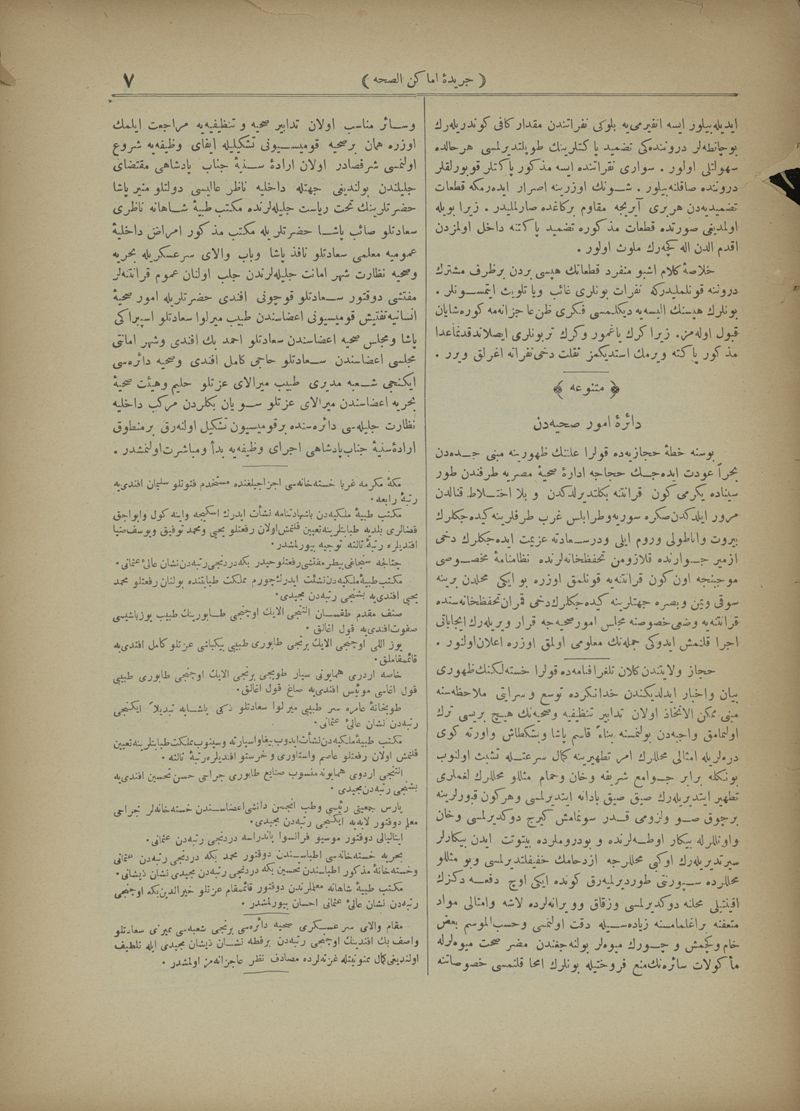 ﴿ جريدهٔ اماكن الصحه ﴾
٧
ايديله‌بيلور ايسه انفيرمى‌يه بلوكى نفراتندن مقدار كافى كوندريله‌رك
بوچانطه‌لر دروننده‌كى تضميد پاكتلرينك طوپلتديرلمسى هر حالده
سهولتلى اولور . سوارى نفراتنده ايسه مذكور پاكتلر قوبورلقلر
دروننده صاقلنه‌بيلور . شونك اوزرينه اصرار ايده‌رمكه قطعات
تضميديه‌دن هر برى آيريجه مقاوم بركاغده صارلمليدر . زيرا بويله
اولمديغى صورتده قطعات مذكوره تضميد پاكتنه داخل اولمزدن
اقدم الدن اله كچه‌رك ملوث اولور .
خلاصهٔ كلام اشبو منفرد قطعاتك هپسى بردن برظرف مشترك
دروننه قونلمليدركه نفرات بونلرى غائب ويا تلويث ايتمسونلر .
بونلرك هپسنك البسه‌يه ديكلمسى فكرى ظن عاجزانه‌مه كوره شايان
قبول اوله‌مز . زيرا كرك ياغمور وكرك تر بونلرى ايصلاتدقدنماعدا
مذكور پاكته ويرمك استديكمز ثقلت دخى نفراته اغرلق ويرر .
﴿ متنوعه ﴾
دائرهٔ امور صحيه‌دن
بوسنه خطهٔ حجازيه‌ده قولرا علتنك ظهورينه مبنى جده‌دن
بحراً عودت ايده‌جك حجاجه ادارهٔ صحيهٔ مصريه طرفندن طور
سيناده يكرمى كون قرانتنه بكلتديرلدكدن و بلا اختلاط قنالدن
مرور ايلدكدن صكره سوريه وطرابلس غرب طرفلرينه كيده‌جكلرك
بيروت واناطولى وروم ايلى ودرسعادته عزيمت ايده‌جكلرك دخى
ازمير جوارنده قلازومن تحفظخانه‌لرنده نظامنامهٔ مخصوصى
موجبنجه اون كون قرانتنه‌يه قونلمق اوزره بو ايكى محلدن برينه
سوقى ويمن وبصره جهتلرينه كيده‌جكلرك دخى قمران تحفظخانه‌سنده
قرانتنه‌يه وضعى خصوصنه مجلس امور صحيه‌جه قرار ويريله‌رك ايجاباتى
اجرا قلنمش ايدوكى جمله‌نك معلومى اولمق اوزره اعلان اولنور .
حجاز ولايتندن كلان تلغرافنامه‌ده قولرا خسته‌لكنك ظهورى
بيان واخبار ايدلديكندن خدانكرده توسع و سرايتى ملاحظه‌سنه
مبنى ممكن الاتخاذ اولان تدابير تنظيفيه وصحيه‌نك هيچ بريسى ترك
اولنمامق واجبه‌دن بولنمسنه بناءً قاسم پاشا وبشكطاش واورته كوى
دره‌لريله امثالى محللرك امر تطهيرينه كمال سرعتله تشبث اولنوب
بونكله برابر جوامع شريفه وخان وحمام مثللو محللرك لغملرى
تطهير ايتديريله‌رك صيق صيق بادانه ايتديرلمسى وهركون قبورلرينه
برچوق صو ولزومى قدر سونمامش كيرج دوكديرلمسى وخان
واونلرله بيكار اوطه‌لرنده و بودروملرده بيتوتت ايدن بيكارلر
سيرنديريله‌رك اوكى محللرجه ازدحامك خفيفلتديرلمسى وبو مثللو
محللرده سپورنتى طورديرلميه‌رق كونده ايكى اوچ دفعه دكزك
اقينتيلى محلنه دوكديرلمسى وزقاق وويرانه‌لرده لاشه وامثالى مواد
متعفنه براغلمامسنه زياده‌سيله دقت اولنمسى وحسب‌الموسم بعض
خام وكچمش و چورك ميوه‌لر بولنه‌جغندن مضر صحت ميوه‌لرله
مأكولات سائره‌نك منع فروختيله بونلرك امحا قلنمسى خصوصاتنه
وسائر مناسب اولان تدابير صحيه و تنظيفيه‌يه مراجعت ايلمك
اوزره همان برصحيه قوميسيونى تشكليله ايفاى وظيفه‌يه شروع
اولنمسى شرفصادر اولان ارادهٔ سنيهٔ جناب پادشاهى مقتضاى
جليلندن بولنديغى جهتله داخليه ناظر عاليسى دولتلو منير پاشا
حضرتلرينك تحت رياست جليله‌لرنده مكتب طبيهٔ شاهانه ناظرى
سعادتلو صائب پاشا حضرتلريله مكتب مذكور امراض داخليهٔ
عموميه معلمى سعادتلو نافذ پاشا وباب والاى سرعسكريله بحريه
وصحيه نظارت شهر امانت جليله‌لرندن جلب اولنان عموم قرانتنه‌لر
مفتشى دوقتور سعادتلو قوچونى افندى حضرتلريله امور صحيهٔ
انسانيه تفتيش قوميسيونى اعضاسندن طبيب ميرلوا سعادتلو اسپراكى
پاشا ومجلس صحيه اعضاسندن سعادتلو احمد بك افندى وشهر امانتى
مجلسى اعضاسندن سعادتلو حاجى كامل افندى وصحيه دائره‌سى
ايكنجى شعبه مديرى طبيب ميرالاى عزتلو حليم وهيئت صحيهٔ
بحريه اعضاسندن ميرالاى عزتلو سويان بكلردن مركب داخليه
نظارت جليله‌سى دائره‌سنده برقوميسيون تشكيل اولنه‌رق برمنطوق
ارادهٔ سنيهٔ جناب پادشاهى اجراى وظيفه‌يه بدأ ومباشرت اولنمشدر .
مكهٔ مكرمه غربا خسته‌خانه‌سى اجزاجيلغنده مستخدم فتوتلو سليمان افندى‌يه
رتبهٔ رابعه .
مكتب طبيهٔ ملكيه‌دن باشهادتنامه نشأت ايدرك اسكيجه واينه كول وايواجق
قضالرى بلديه طبابتلرينه تعيين قلنمش اولان رفعتلو يحيى ومحمد توفيق ويوسف ضيا
افنديلره رتبهٔ ثالثه توجيه بيورلمشدر .
چتالجه سنجاغى بيطر مفتشى رفعتلو حيدر بكه دردنجى رتبه‌دن نشان عالىٔ عثمانى .
مكتب طبيهٔ ملكيه‌دن نشئت ايدرك چورم مملكت طبابتنده بولنان رفعتلو محمد
يحيى افندى‌يه بشنجى رتبه‌دن مجيدى .
صنف مقدم طقسان التنجى الايك اوچنجى طابورينك طبيب يوزباشيسى
صفوت افندى‌يه قول اغالق .
يوز اللى اوچنجى الايك برنجى طابورى طبيبى بيكباشى عزتلو كامل افندى‌يه
قائمقاملق .
خاصه اردوى همايونى سيار طوپجى برنجى الايك اوچنجى طابورى طبيبى
قول اغاسى موئيس افندى‌يه صاغ قول اغالق .
طوبخانهٔ عامره سر طبيبى ميرلوا سعادتلو ذكى پاشايه تبديلاً ايكنجى
رتبه‌دن نشان عالىٔ عثمانى .
مكتب طبيهٔ ملكيه‌دن نشأت ايدوب بيغا واسپارته وسينوب مملكت طبابتلرينه تعيين
قلنمش اولان رفعتلو عاصم واستاورى و خرستو افنديلره رتبهٔ ثالثه .
التنجى اردوى همايونه منسوب صنايع طابورى جراحى حسن تحسين افندى‌يه
بشنجى رتبه‌دن مجيدى .
پارس جمعيتى رئيسى وطب انجمن دانشى اعضاسندن خسته‌خانه‌لر تجراحى
معلمى دوقتور لابه‌يه ايكنجى رتبه‌دن مجيدى .
ايتاليالى دوقتور موسيو فرانسوا باندراسه دردنجى رتبه‌دن عثمانى .
بحريه خسته‌خانه‌سى اطباسندن دوقتور محمد بكه دردنجى رتبه‌دن عثمانى
وخسته‌خانهٔ مذكور اطباسندن تحسين بكه دردنجى رتبه‌دن مجيدى نشان ذيشانى .
مكتب طبيهٔ شاهانه معلمارندن دوقتور قائمقام عزتلو خيرالدين بكه اوچنجى
رتبه‌دن نشان عالىٔ عثمانى احسان بيورلمشدر .
مقام والاى سرعسكرى صحيه دائره‌سى برنجى شعبه‌سى مميزى سعادتلو
واصف بك افندينك اوچنجى رتبه‌دن برقطعه نشان ذيشان مجيدى ايله تلطيف
اولنديغى كمال ممنونيتله غزته‌لرده مصادف نظر عاجزانه‌مز اولمشدر .